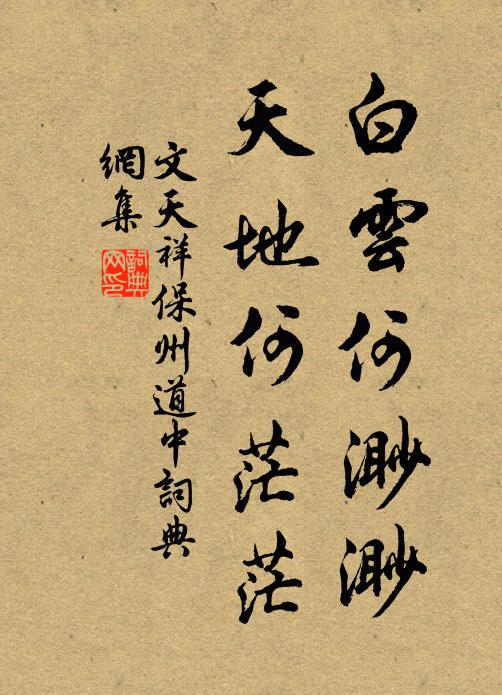 白雲何渺渺
天地何茫茫
文天祥保州道中詞典
網集
詞典網印